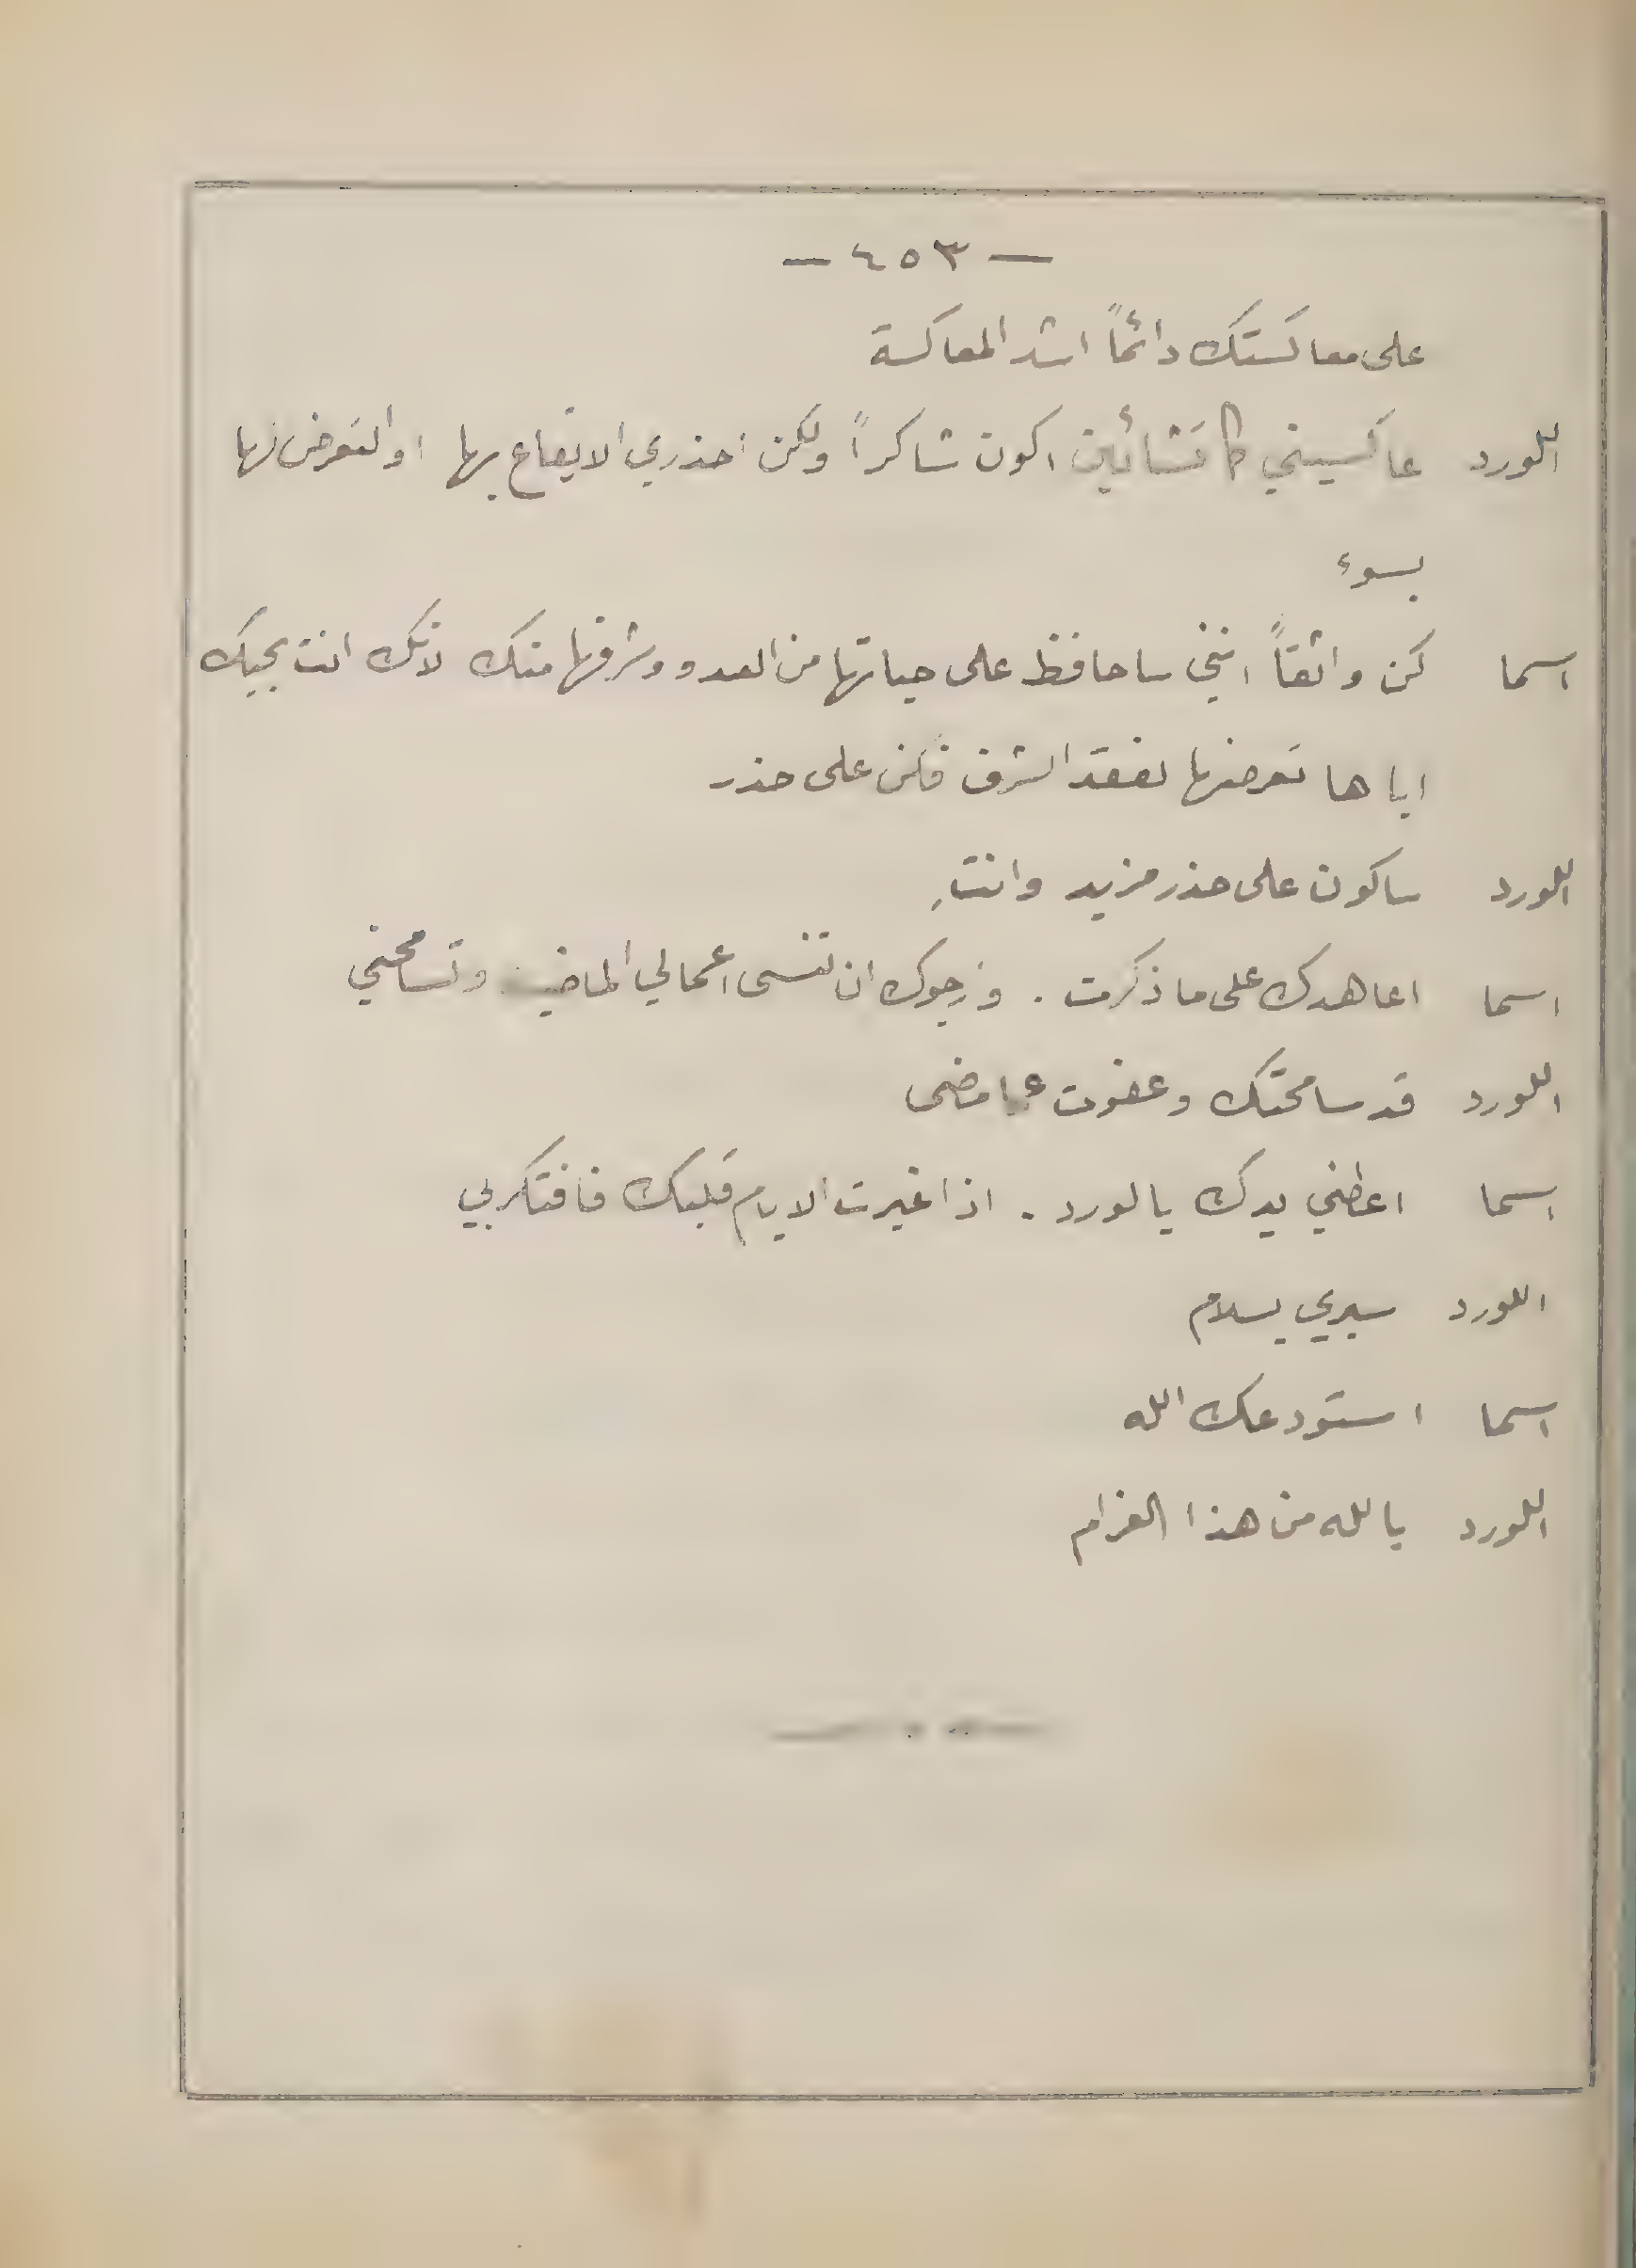 — ٤٥٣ —
على معاكستك دائماً اشد المعاكسة
اللورد عاكسيني كما تشائين اكون شاكراً ولكن احذري الايقاع بها او التعرض لها
بسوء
اسما كن واثقاً انني ساحافظ على حياتها من العدو وشرفها منك لانك انت بحبك
اياها تعرضها لفقد الشرف فكن على حذر
اللورد ساكون على حذر مزيد وانتِ
اسما اعاهدك على ما ذكرت . وارجوك ان تنسى اعمالي الماضية وتسامحني
اللورد قد سامحتك وعفوت عما مضى
اسما اعطني يدك يا لورد . اذا غيرت الايام قلبك فافتكر بي
اللورد سيري بسلام
اسما استودعك الله
اللورد يا لله من هذا الغرام